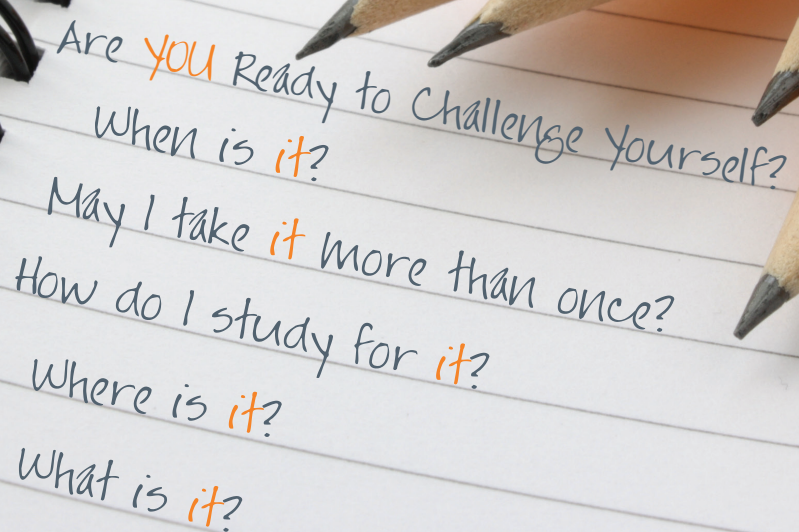 Are YOU Ready to Challenge Yourself?
When is it?
May I take it more than once?
How do I study for it?
Where is it?
What is it?